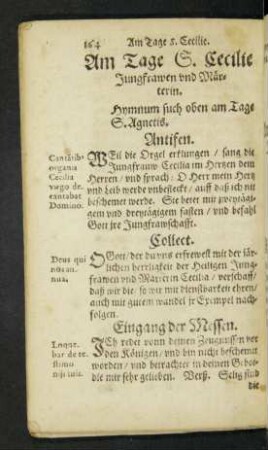 164 Am Tage S. Cecilie.
Am Tage S. Cecilie
Jungfrawen vnd Mär-
terin.
Hymnum such oben am Tage
S. Agnetis.
Antifen.
Cantātib9
organis
Cecilia
virgo de-
cantabat
Domino.
WEil die Orgel erklungen / sang die
Jungfraw Cecilia im Hertzen dem
Herren / vnd sprach: O Herr mein Hertz
vnd Leib werde vnbefleckt / auff daß ich nit
beschemet werde. Sie betet mit zweytägi-
gem vnd dreytägigem fasten / vnd befahl
Gott jre Jungfrawschafft.
Collect.
Deus qui
nos an-
nua.
O Gott / der du vns erfrewest mit der jär-
lichen herrligkeit der Heiligen Jung-
frawen vnd Martyrin Cecilia / verschaff /
daß wir die / so wir mit dienstbarkeit ehren /
auch mit gutem wandel jr Exempel nach-
folgen.
Eingang der Messen.
Loque-
bar de te-
stimo
nijs tuis.
ICh redet vonn deinen Zeugnussen vor
den Königen / vnd bin nicht beschemet
worden / vnd betrachtet in deinen Gebot-
die mir sehr gelieben. Verß. Selig sind
die